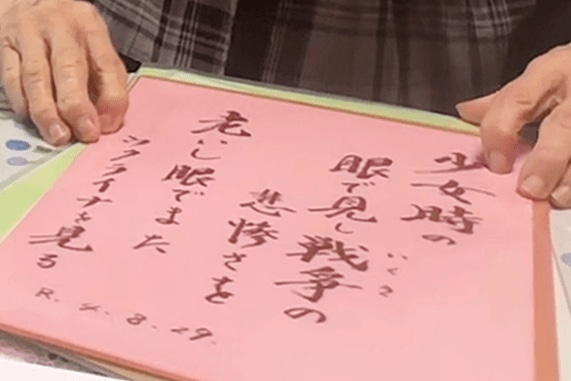 少女時の
いくさ
眼で見し戦争の
悲惨さを
老いし眼でまた
ウクライナを見る
R. 4. 8. 29.